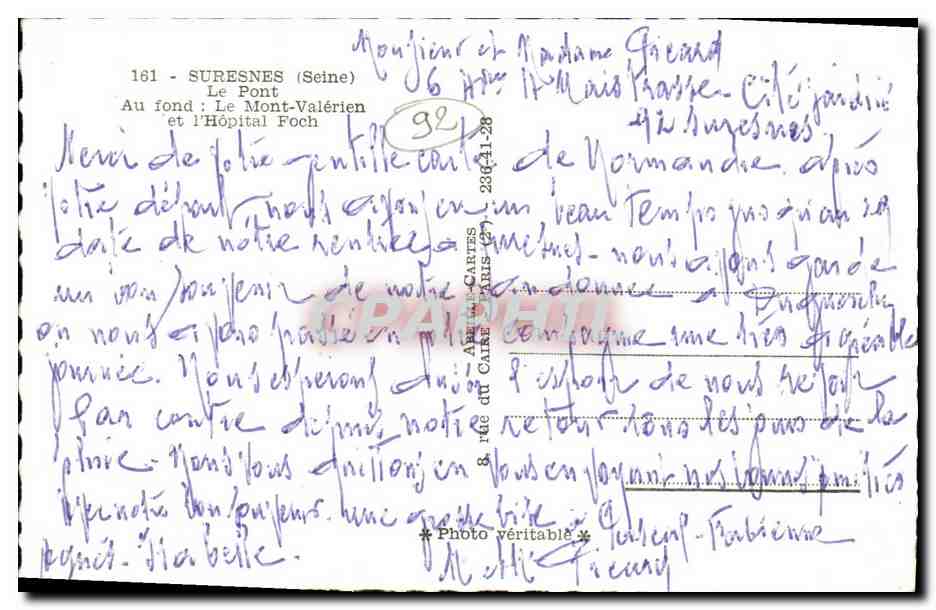 Monsieur et Madame Picard
6
Cité jardin
92 Suresnes
161 - SURESNES (Seine)
Le Pont
Au fond : Le Mont-Valérien
et l'Hôpital Foch
92
Merci de votre gentille carte de Normandie. après
votre départ, nous avons eu un beau temps jusqu'au
date de notre rentrée à Suresnes. nous avons gardé
un bon souvenir de notre randonnée à
ou nous avons passé en votre compagnie une très agréable
journée. Nous espérons avoir l'espoir de nous revoir
Par contre depuis notre retour tous les jours de la
pluie. Nous vous quittons en vous envoyant nos bonnes amitiés
avec notre bon souvenir. une grosse bise à Fabienne
Agnès - Isabelle.
M. Mme Picard
ABEILLE-CARTES
8, rue du CAIRE - PARIS (2e) - 236-41-28
* Photo véritable *
CARAPHIL